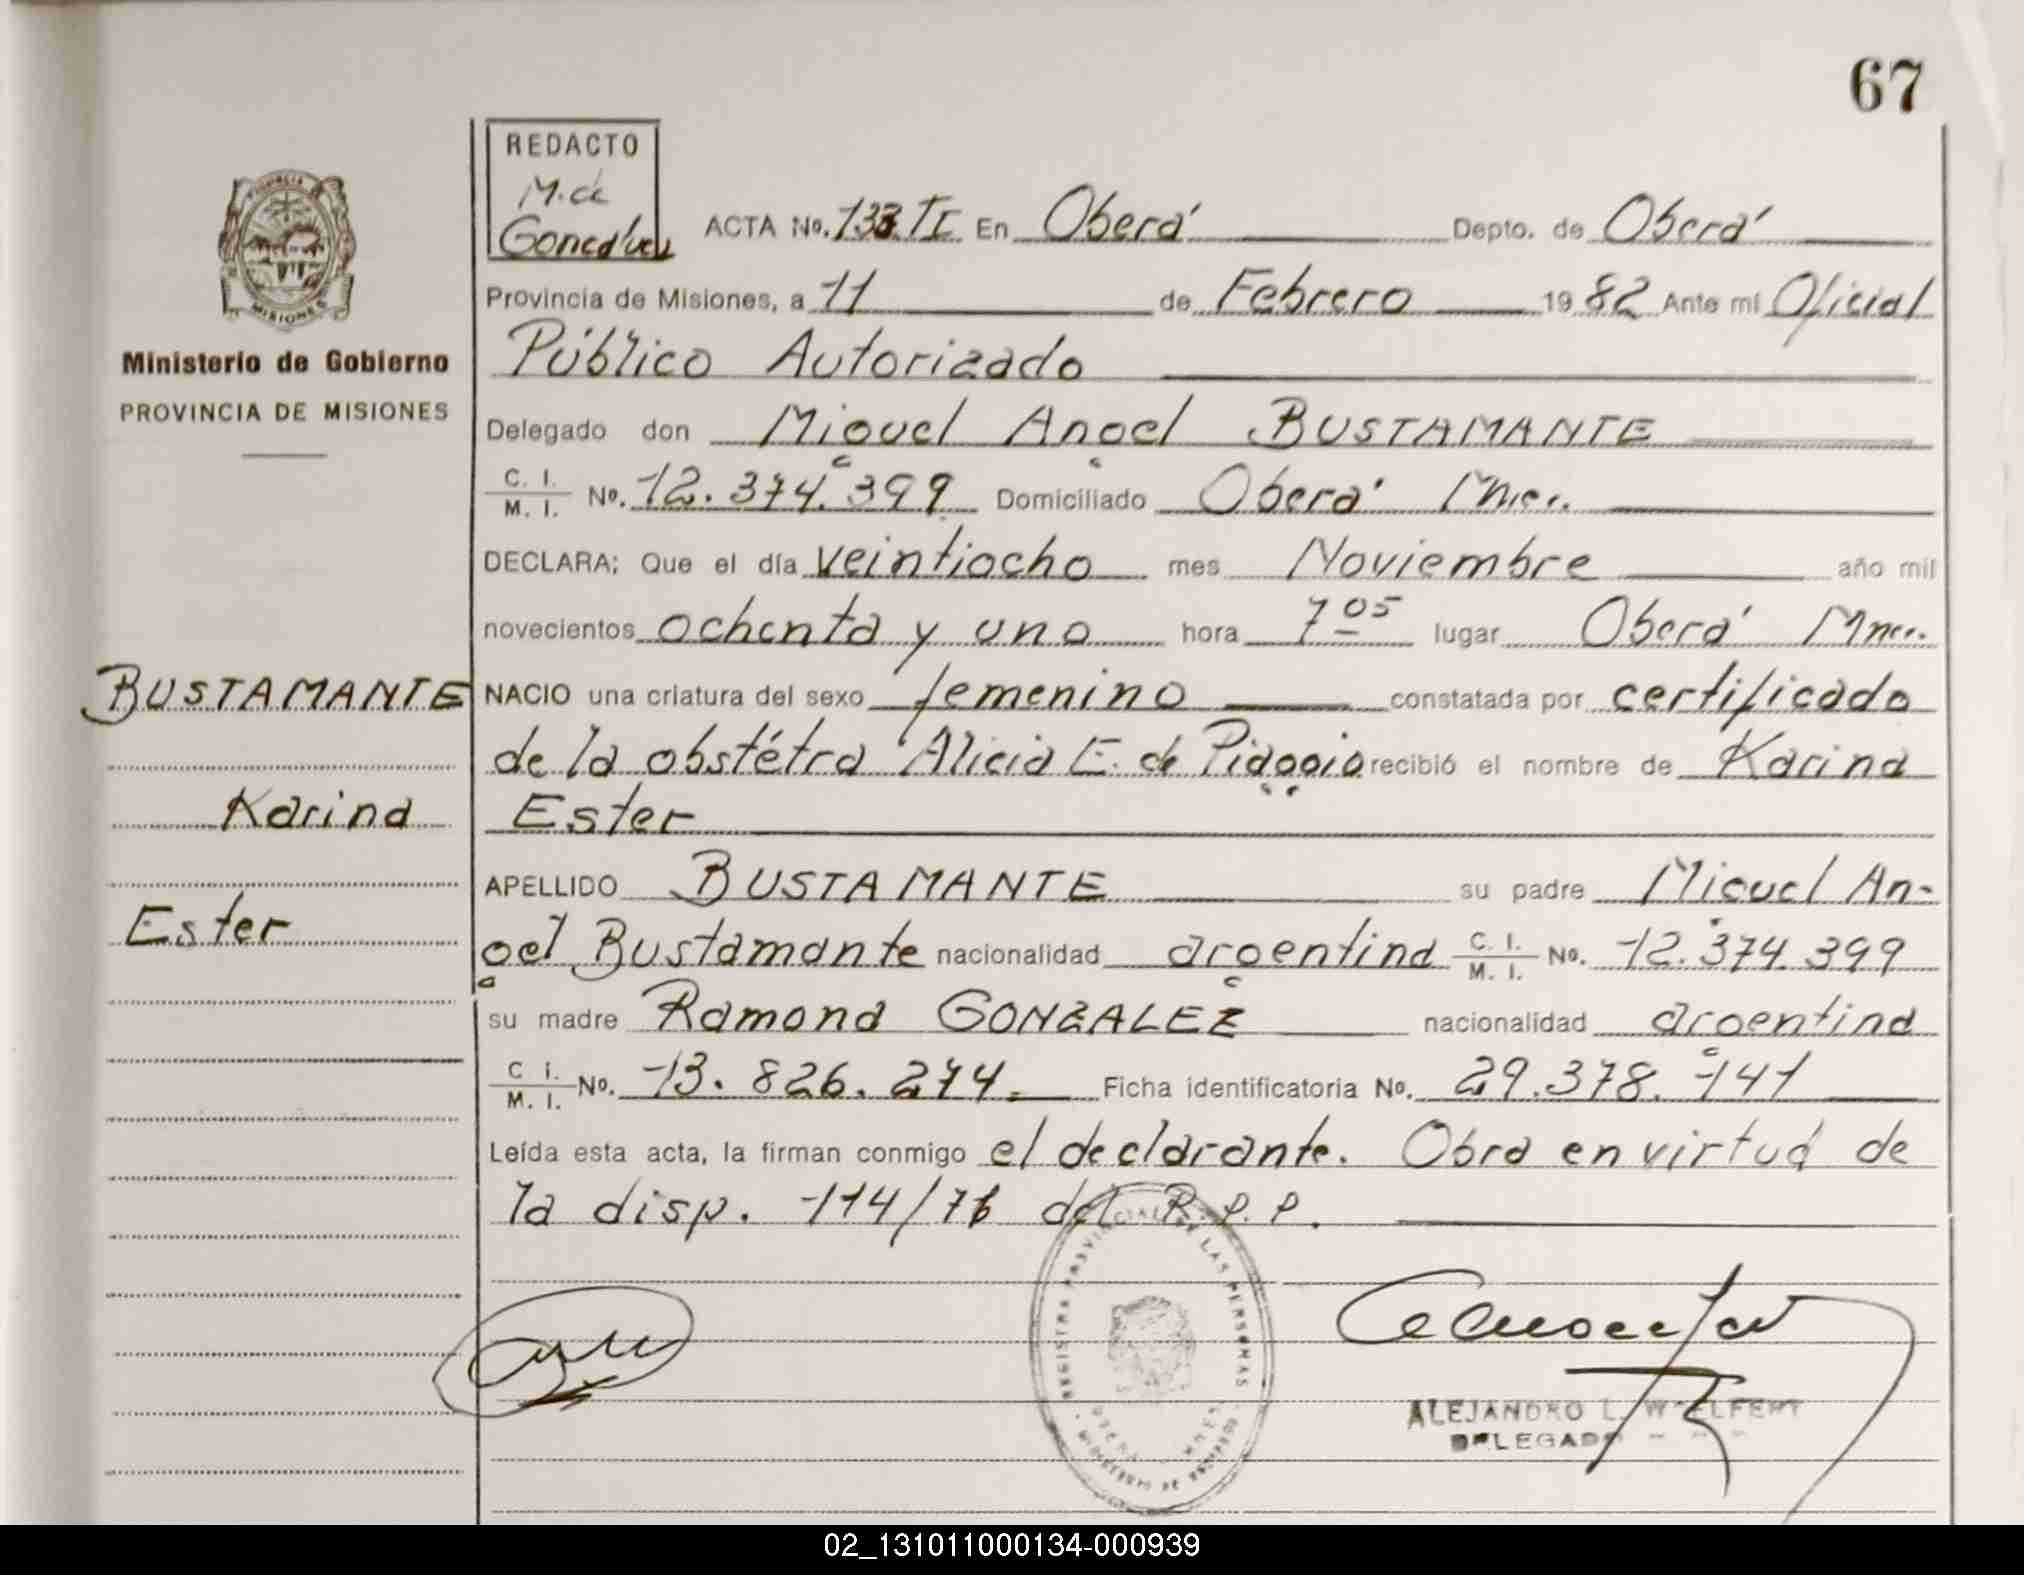 67
REDACTO
M. de
Goncalves
ACTA No. 133 TI En Oberá Depto. de Oberá
Provincia de Misiones, a 11 de Febrero 1982 Ante mi Oficial
Público Autorizado
Delegado don Miguel Angel BUSTAMANTE
C. I. / M. I. No. 12.374.399 Domiciliado Oberá Mnes.
DECLARA; Que el día veintiocho mes Noviembre año mil
novecientos ochenta y uno hora 7 05 lugar Oberá Mnes.
NACIO una criatura del sexo femenino constatada por certificado
de la obstétra Alicia E. de Piaggio recibió el nombre de Karina
Ester
APELLIDO BUSTAMANTE su padre Miguel An-
gel Bustamante nacionalidad argentina C. I. / M. I. No. 12.374.399
su madre Ramona GONZALEZ nacionalidad argentina
C i. / M. I. No. 13.826.274. Ficha identificatoria No. 29.378.141
Leída esta acta, la firman conmigo el declarante. Obra en virtud de
la disp. 114/76 del R.P.P.
PROVINCIA
MISIONES
Ministerio de Gobierno
PROVINCIA DE MISIONES
BUSTAMANTE
Karina
Ester
REGISTRO PROVINCIAL DE LAS PERSONAS
ALEJANDRO L.
DELEGADO
02_131011000134-000939